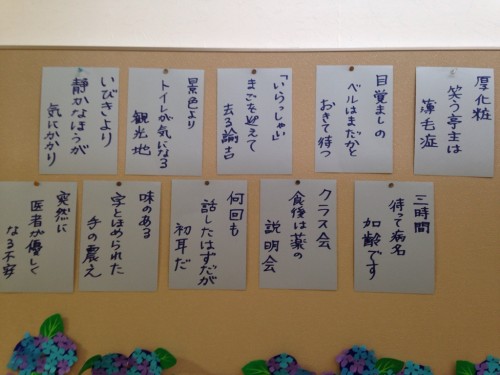 厚化粧
笑う亭主は
薄毛症
目覚ましの
ベルはまだかと
おきて待つ
「いらっしゃい」
まごを迎えて
去る諭吉
景色より
トイレが気になる
観光地
いびきより
静かなほうが
気にかかり
三時間
待って病名
加齢です
クラス会
食後は薬の
説明会
何回も
話したはずだが
初耳だ
味のある
字とほめられた
手の震え
突然に
医者が優しく
なる不安